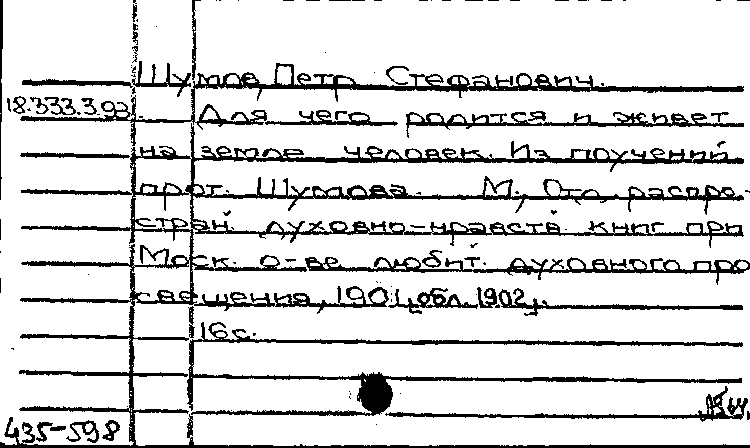 Шумов, Петр Стефанович.
18.333.3.93. Для чего родится и живет
на земле человек. Из поучений
прот. Шумова. М., Отд. распро-
стран. духовно-нравств. книг при
Моск. о-ве любит. духовного про
свещения, 1901 [обл. 1902].
16 с.
435-598